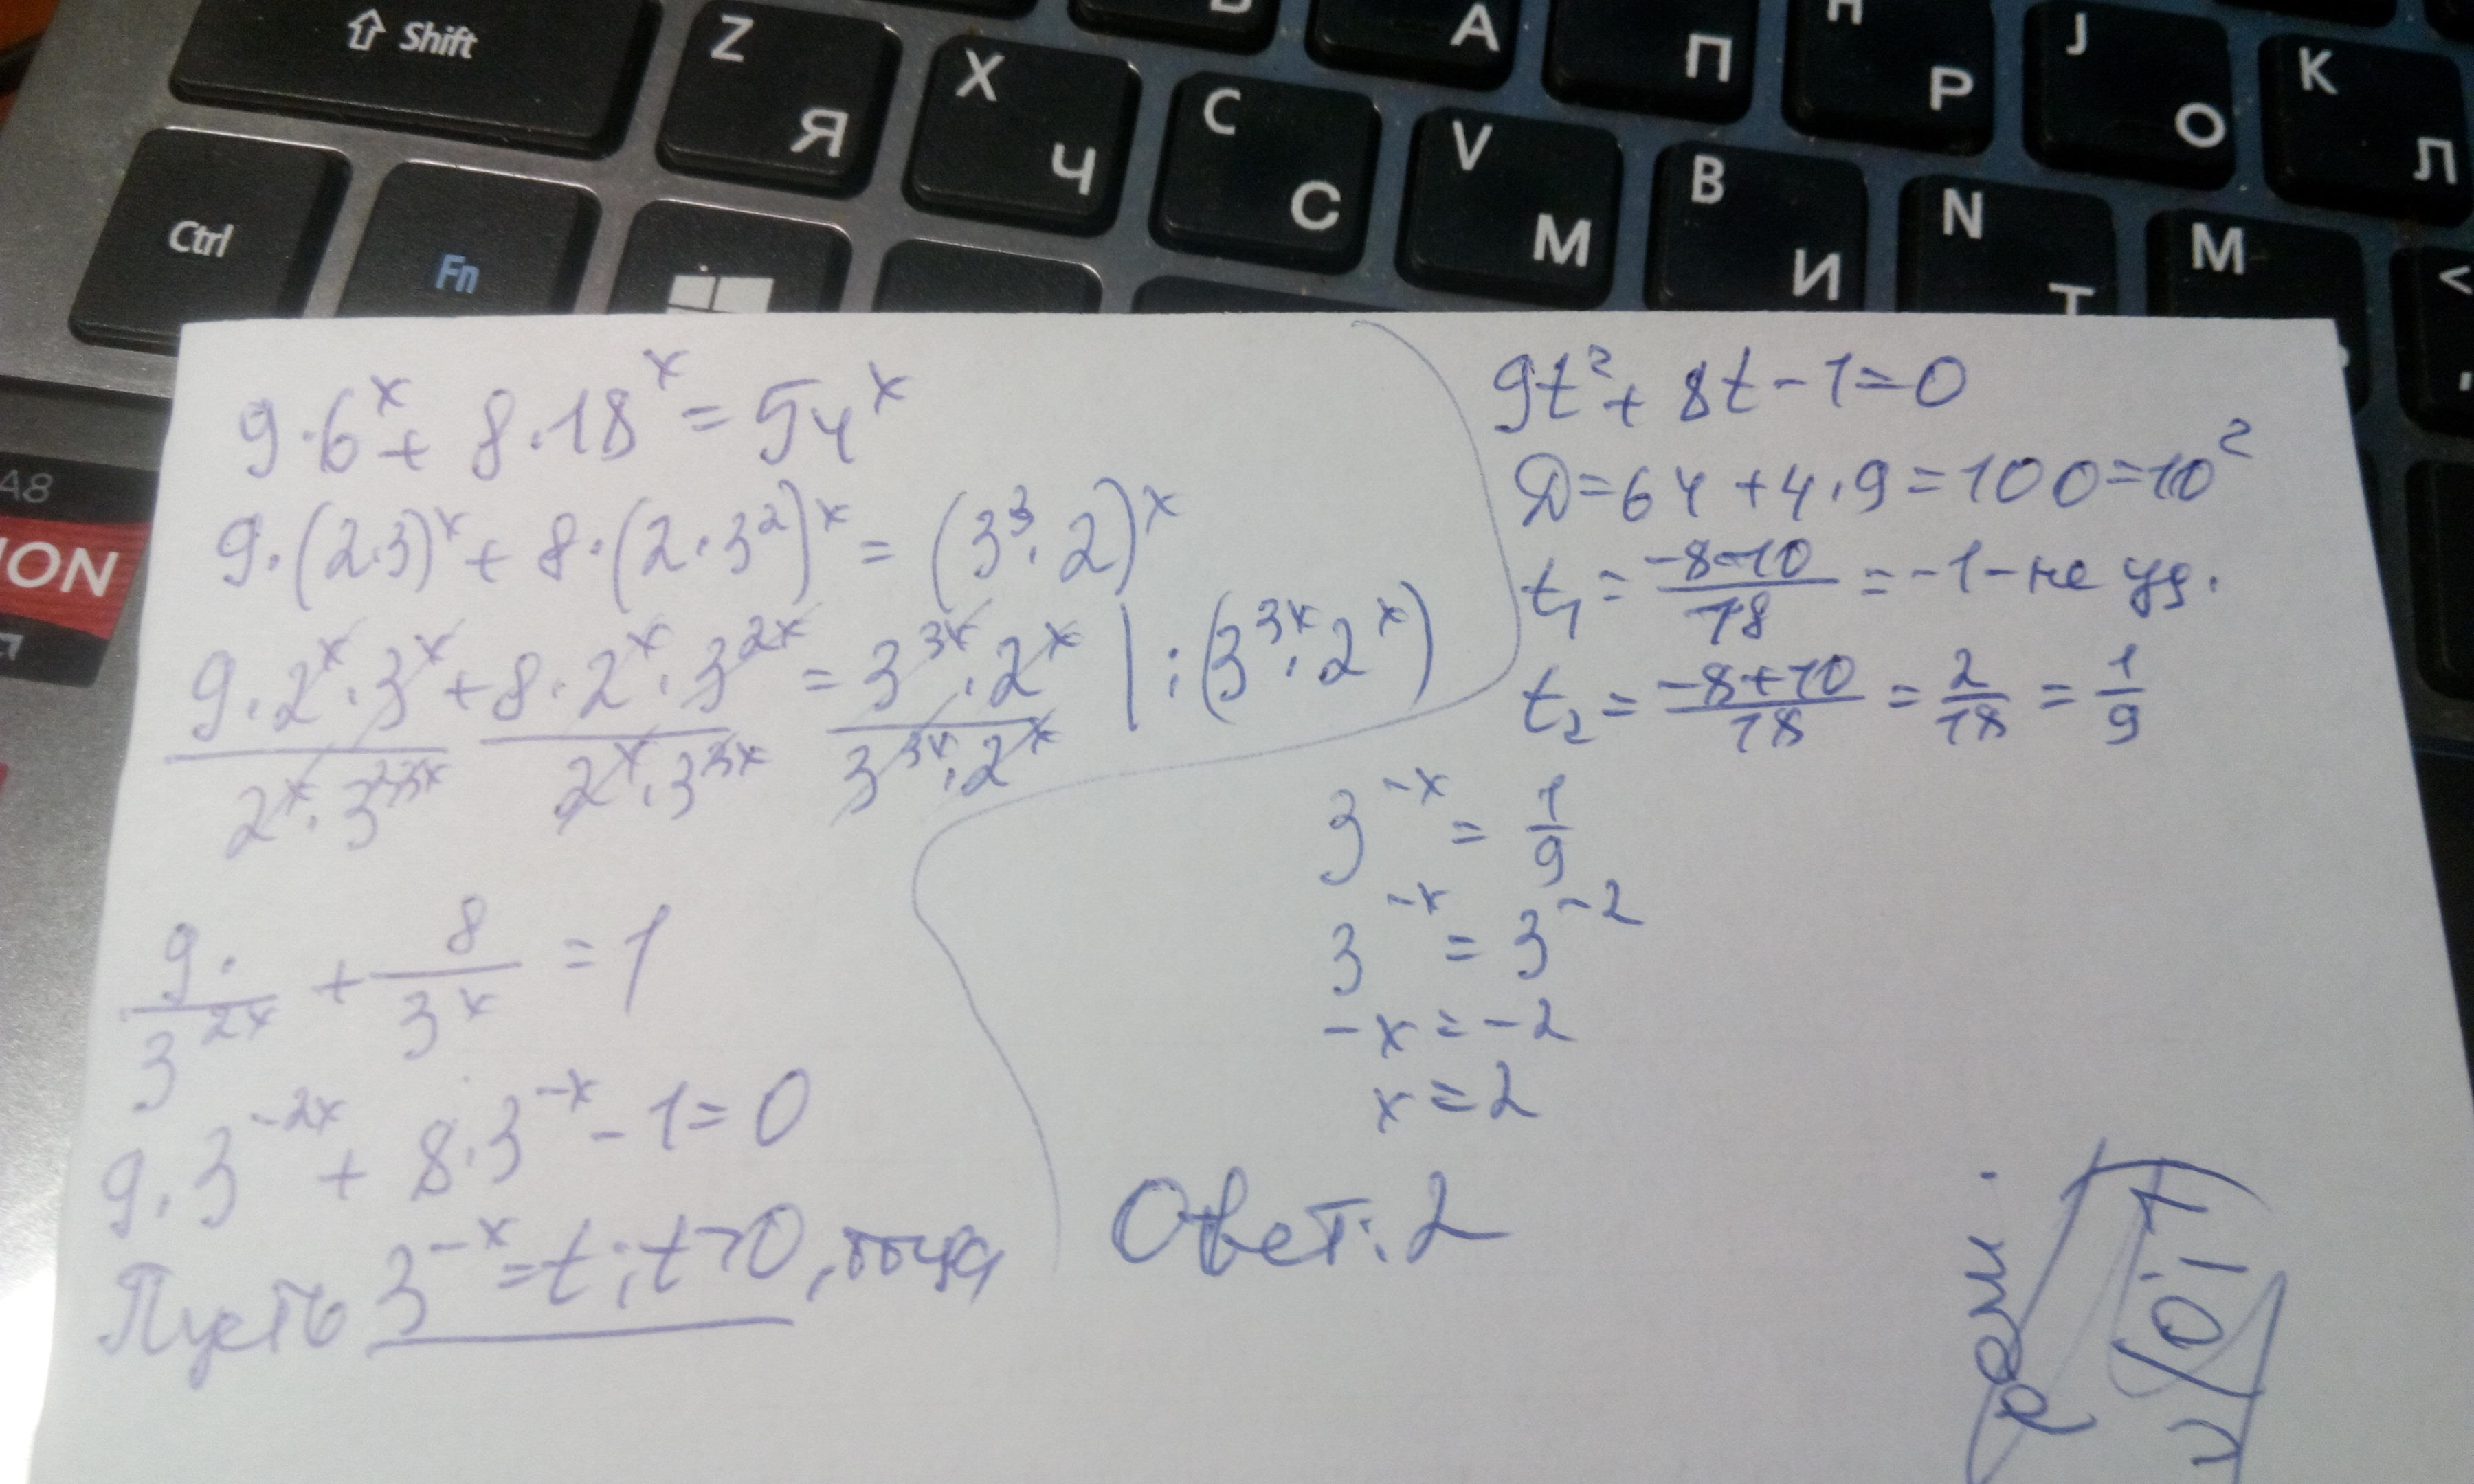 ⇧ Shift
Z Я
X Ч
C С
V М
B И
N Т
M
<
А
П
Н Р
J О
K Л
Ctrl
Fn
A8
ION
9·6^x + 8·18^x = 54^x
9·(2·3)^x + 8·(2·3^2)^x = (3^3·2)^x
9·2^x·3^x/(2^x·3^3x) + 8·2^x·3^2x/(2^x·3^3x) = 3^3x·2^x/(3^3x·2^x) | :(3^3x·2^x)
9·/3^2x + 8/3^x = 1
9·3^-2x + 8·3^-x - 1 = 0
Пусть 3^-x = t; t>0, тогда
9t^2 + 8t - 1 = 0
D = 64 + 4·9 = 100 = 10^2
t1 = (-8-10)/18 = -1 - не уд.
t2 = (-8+10)/18 = 2/18 = 1/9
3^-x = 1/9
3^-x = 3^-2
-x = -2
x = 2
Ответ: 2